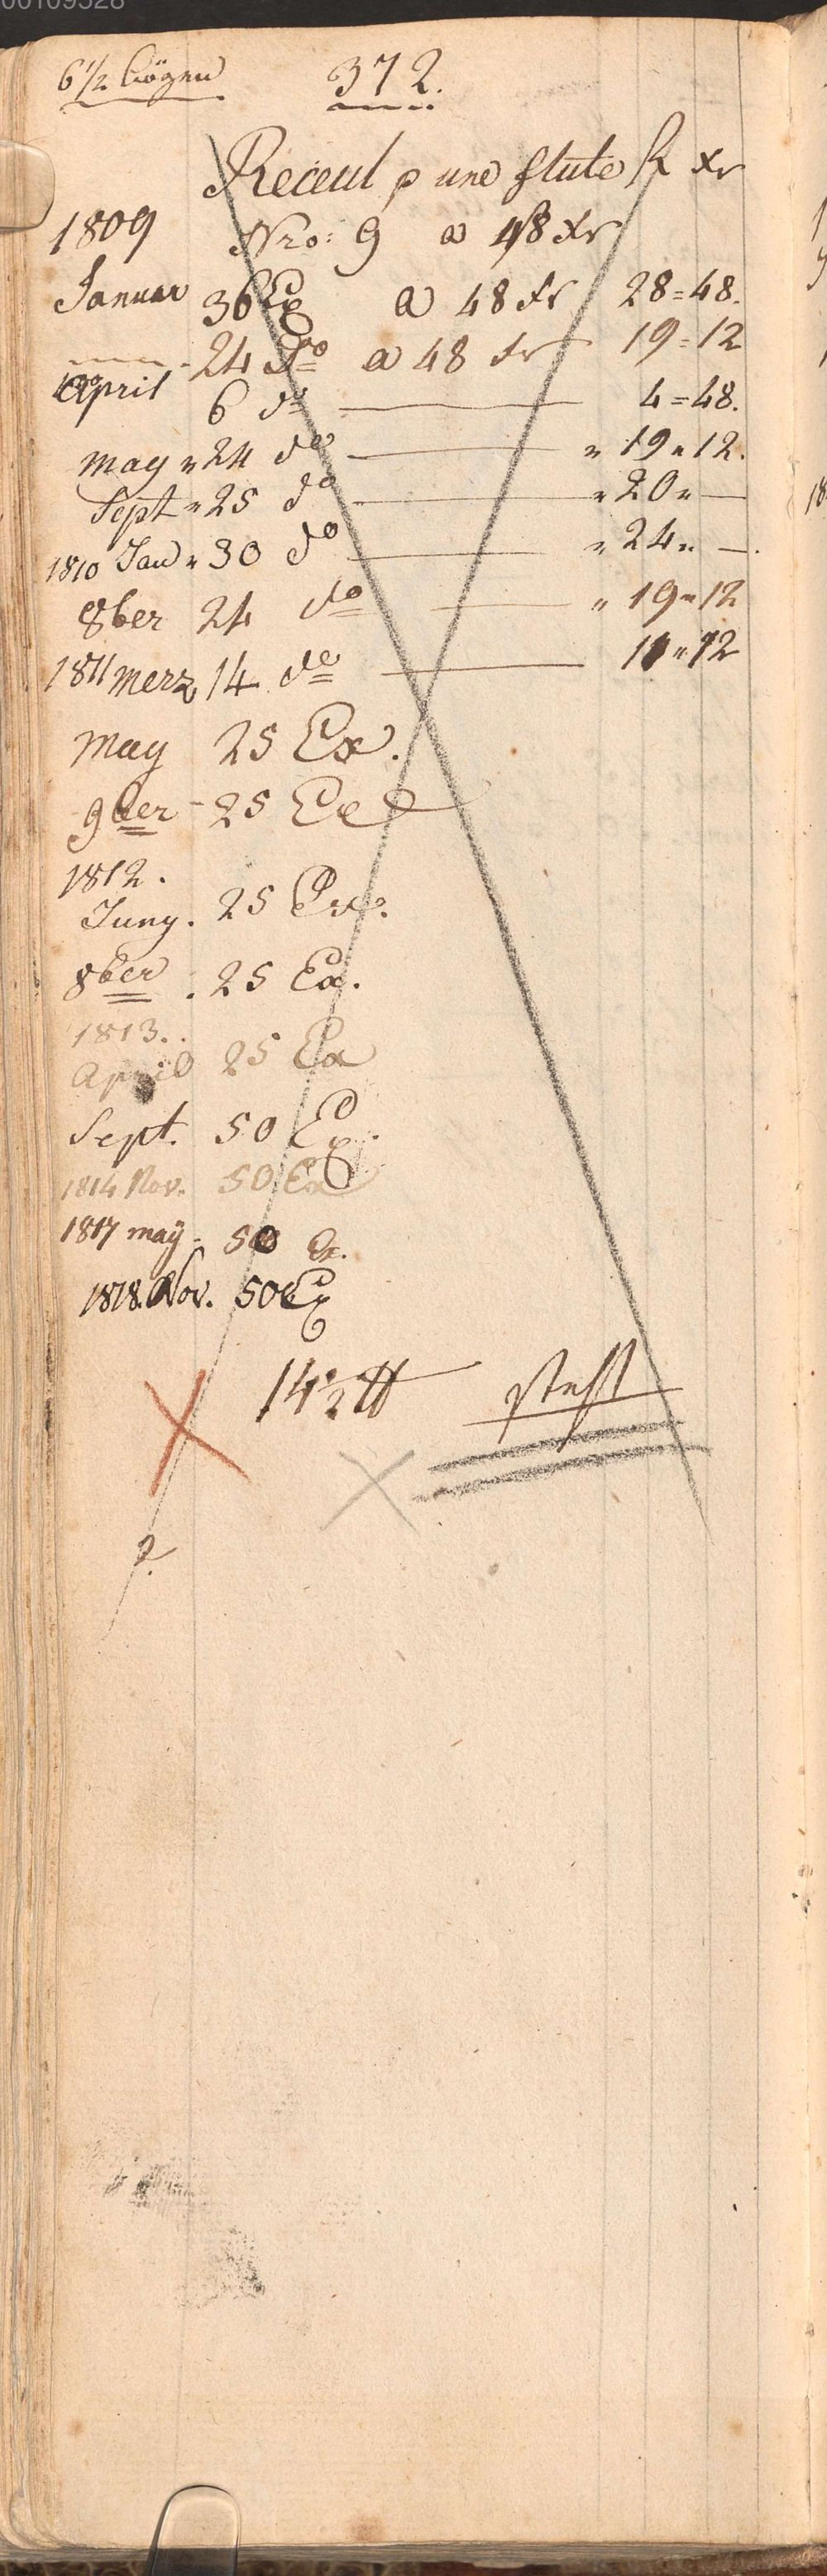 00109528
6 1/2 bögen 372.
Receul p une flute fl xr
1809 Nro: 9 a 48 xr
Januar 36 Ex a 48 xr 28=48.
24 do a 48 xr 19=12
April 6 do 4=48.
may " 24 do " 19 " 12.
Sept " 25 do " 20 " —
1810 Jan " 30 do " 24 " —.
8ber 24 do " 19 " 12
1811 merz 14 do 11 " 12
may 25 Ex.
9ber - 25 Ex
1812.
Juny. 25 Ex.
8ber. 25 Ex.
1813.
April 25 Ex
Sept. 50 Ex.
1814 Nov. 50 Ex
1817 maÿ - 50 Ex.
1818. Nov. 50 Ex
14 1/2 ℔ steht